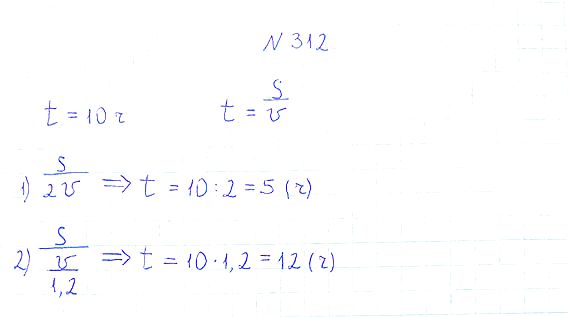 N 312
t = 10 ч t = S/v
1) S/2v ⇒ t = 10 : 2 = 5 (ч)
2) S/(v/1,2) ⇒ t = 10 · 1,2 = 12 (ч)